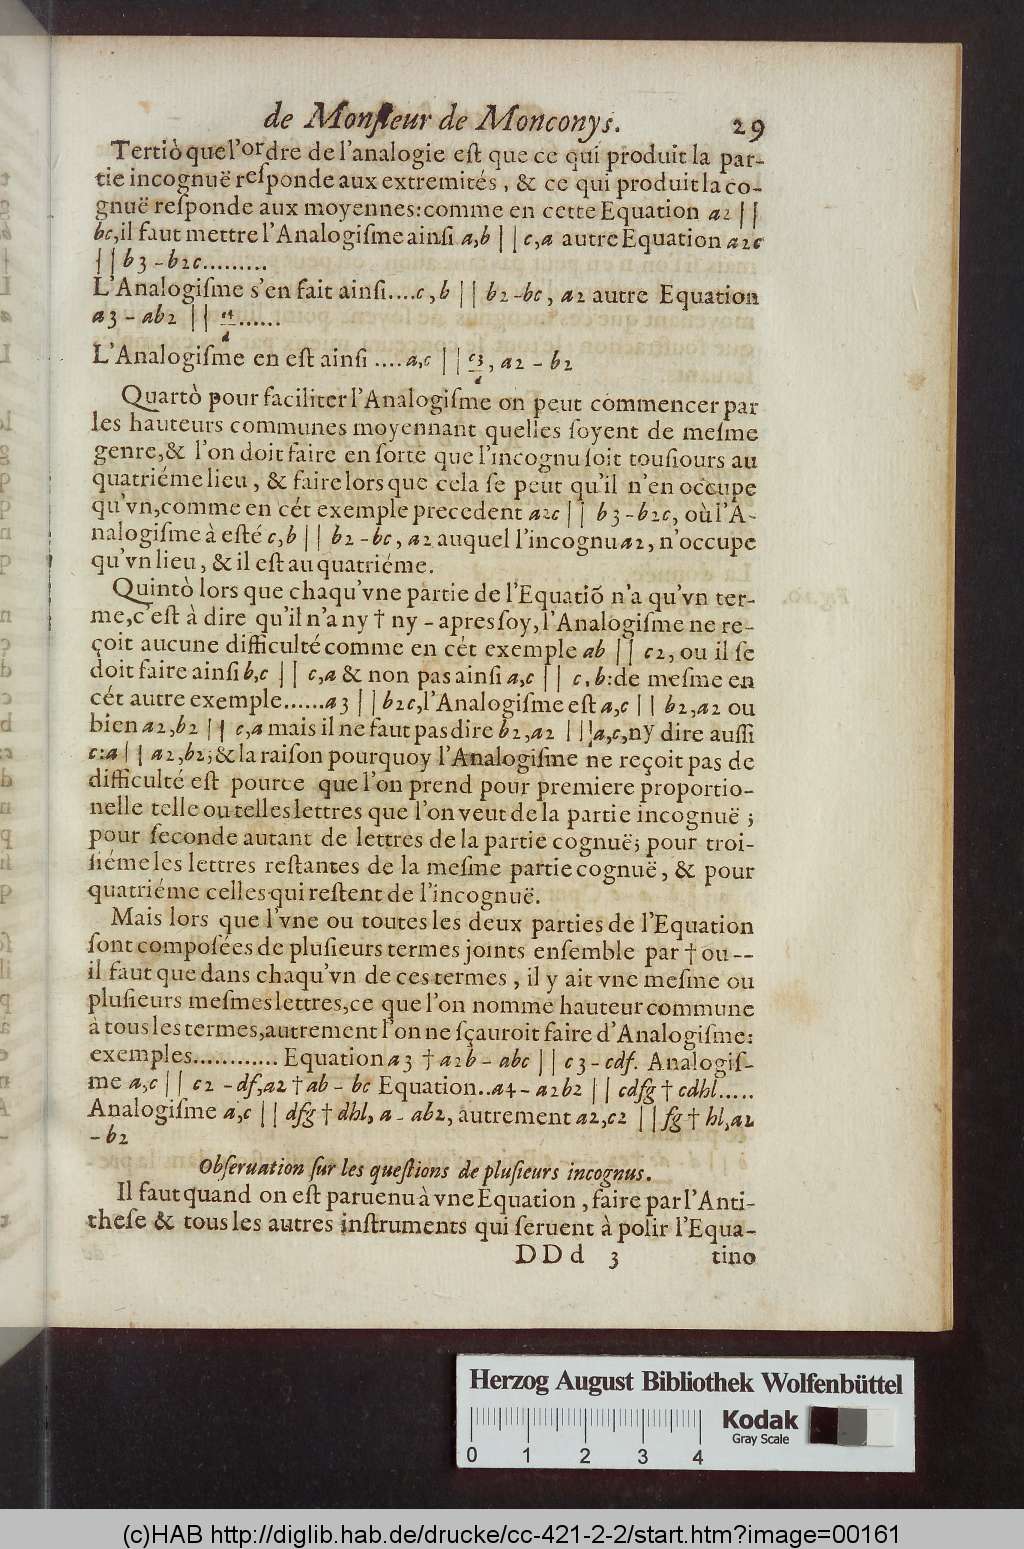 de Monſieur de Monconys. 29
Tertiò quel'ordre de l'analogie eſt que ce qui produit la par-
tie incognuë reſponde aux extremités, & ce qui produit la co-
gnuë reſponde aux moyennes: comme en cette Equation a2 ||
bc, il faut mettre l'Analogiſme ainſi a,b || c,a autre Equation a2c
|| b3 - b2c.........
L'Analogiſme s'en fait ainſi....c,b || b2-bc, a2 autre Equation
a3 - ab2 || c4/d......
L'Analogiſme en eſt ainſi ....a,c || c3/d, a2 - b2
Quartò pour faciliter l'Analogiſme on peut commencer par
les hauteurs communes moyennant quelles ſoyent de meſme
genre, & l'on doit faire en ſorte que l'incognu ſoit touſiours au
quatriéme lieu, & faire lors que cela ſe peut qu'il n'en occupe
qu'vn, comme en cét exemple precedent a2c || b3 - b2c, où l'A-
nalogiſme à eſté c,b || b2 - bc, a2 auquel l'incognu a2, n'occupe
qu'vn lieu, & il eſt au quatriéme.
Quintò lors que chaqu'vne partie de l'Equatiõ n'a qu'vn ter-
me, c'eſt à dire qu'il n'a ny † ny - apres ſoy, l'Analogiſme ne re-
çoit aucune difficulté comme en cét exemple ab || c2, ou il ſe
doit faire ainſi b,c || c,a & non pas ainſi a,c || c,b: de meſme en
cét autre exemple......a3 || b2c, l'Analogiſme eſt a,c || b2,a2 ou
bien a2,b2 || c,a mais il ne faut pas dire b2,a2 || a,c, ny dire auſſi
c:a || a2,b2; & la raiſon pourquoy l'Analogiſme ne reçoit pas de
difficulté eſt pource que l'on prend pour premiere proportio-
nelle telle ou telles lettres que l'on veut de la partie incognuë;
pour ſeconde autant de lettres de la partie cognuë; pour troi-
ſiéme les lettres reſtantes de la meſme partie cognuë, & pour
quatriéme celles qui reſtent de l'incognuë.
Mais lors que l'vne ou toutes les deux parties de l'Equation
ſont compoſées de pluſieurs termes joints enſemble par † ou --
il faut que dans chaqu'vn de ces termes, il y ait vne meſme ou
pluſieurs meſmes lettres, ce que l'on nomme hauteur commune
à tous les termes, autrement l'on ne ſçauroit faire d'Analogiſme:
exemples............ Equation a3 † a2b - abc || c3 - cdf. Analogiſ-
me a,c || c2 - df, a2 † ab - bc Equation..a4 - a2b2 || cdfg † cdhl.....
Analogiſme a,c || dfg † dhl, a - ab2, autrement a2,c2 || fg † hl,a2
- b2
Obſeruation ſur les queſtions de pluſieurs incognus.
Il faut quand on eſt paruenu à vne Equation, faire par l'Anti-
theſe & tous les autres inſtruments qui ſeruent à polir l'Equa-
DDd 3 tino
Herzog August Bibliothek Wolfenbüttel
Kodak
Gray Scale
0 1 2 3 4
(c)HAB http://diglib.hab.de/drucke/cc-421-2-2/start.htm?image=00161